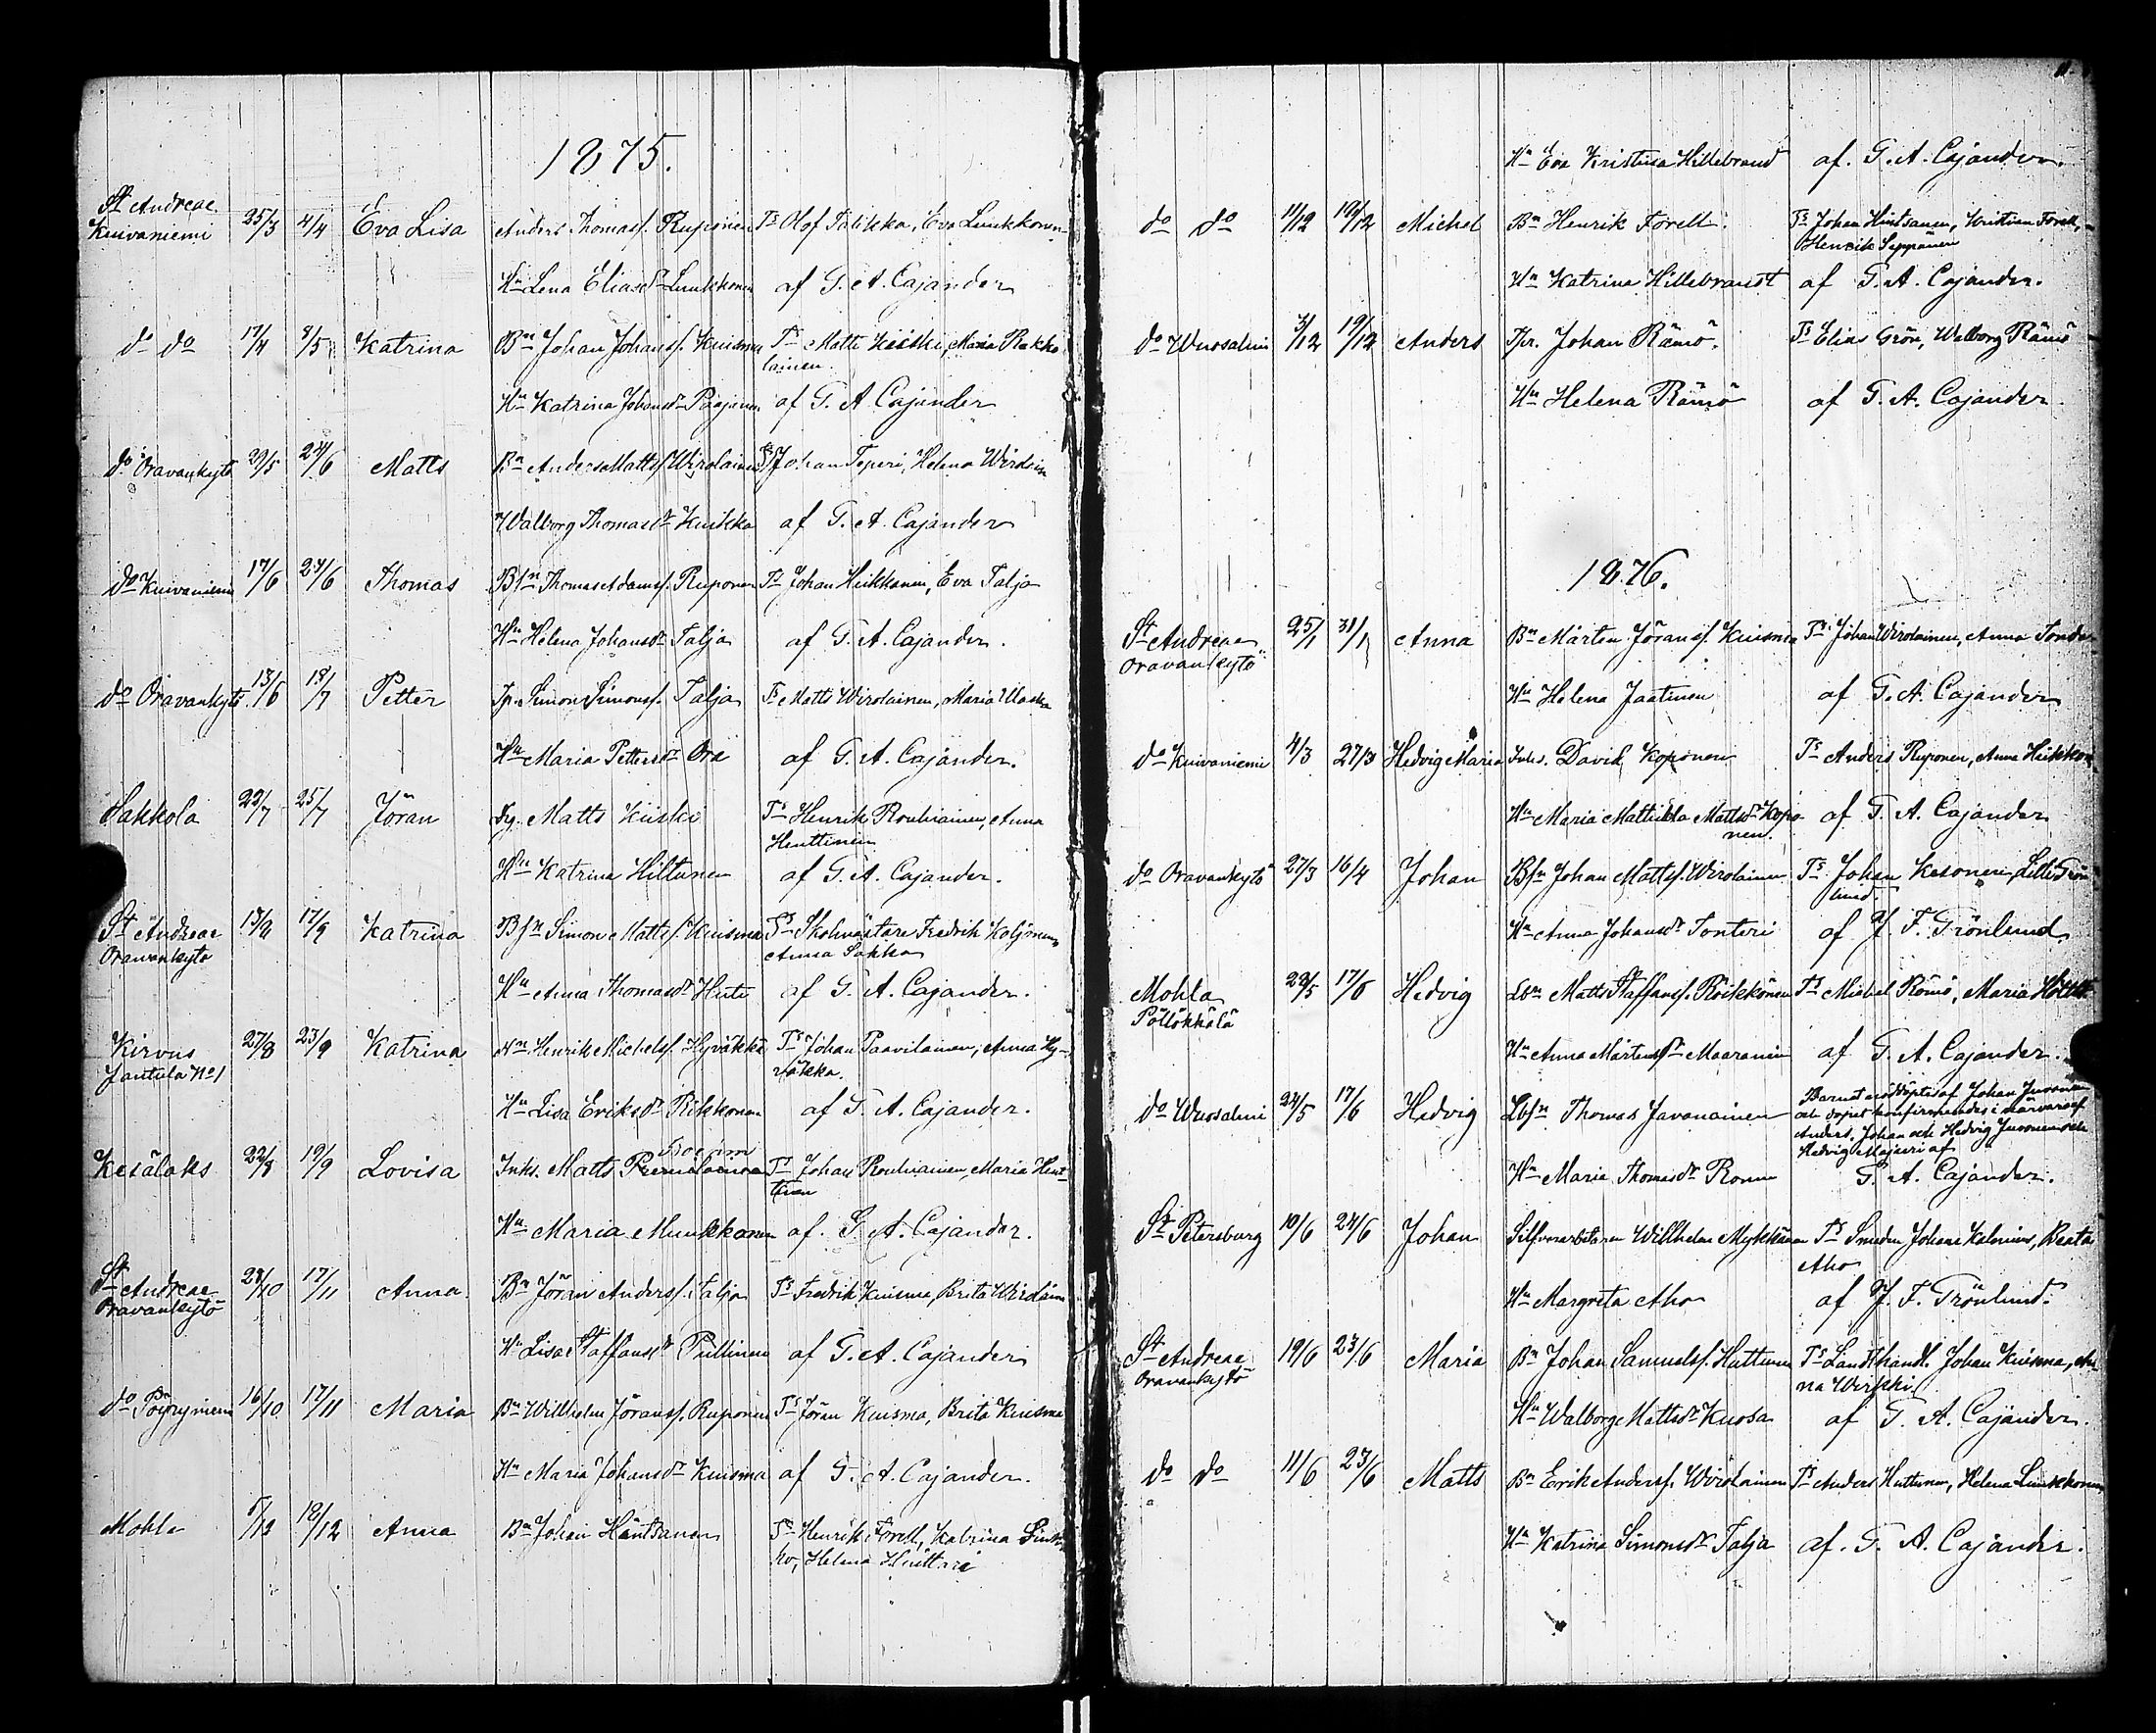 1875.
St Andreae
Kuivaniemi 25/3 4/4 Eva Lisa Anders Thomass. Ruponen Ts Olof Talikka, Eva Luukkonen
Hn Lena Eliasdr Luukkonen af G. A. Cajander
do do 17/4 8/5 Katrina Bn Johan Johanss. Kuisma Ts Matti Kiiski, Maria Rakko
lainen.
Hn Katrina Johansdr Paajanen af G. A. Cajander
do Oravankytö 29/5 24/6 Matts Bn Anders Mattss. Wirolainen Ts Johan Teperi, Helena Wirolain
Walborg Thomasdr Kuikka af G. A. Cajander
do Kuivaniemi 17/6 24/6 Thomas Bsn Thomas Adamss. Ruponen Ts Johan Heikkonen, Eva Talja
Hn Helena Johansdr Talja af G. A. Cajander.
do Oravankytö 13/6 18/7 Petter Tp. Simon Simonss. Talja Ts Matts Wirolainen, Maria
Hn Maria Pettersdr Ora af G. A. Cajander.
Sakkola 22/7 25/7 Jöran Matts Kiiski Ts Henrik Rouhiainen, Anna
Henttinen
Hn Katrina Hiltunen af G. A. Cajander.
St Andreae
Oravankytö 17/9 Katrina Bsn Simon Mattss. Kuisma Ts Skolmästare Fredrik
Anna Sakka
Hn Anna Thomasdr af G. A. Cajander.
Kirvus
Jantula No 1 27/8 23/9 Katrina Henrik Michelss. Hyväkkä Ts Johan Paavilainen, Anna Hy-
väkkä.
Hn Lisa Eriksdr Rikkonen af G. A. Cajander.
Kesälaks 22/8 19/9 Lovisa Inhs. Matts Ts Johan Rouhiainen, Maria Hent-
tinen
Hn Maria Muukkonen af G. A. Cajander.
St Andreae
Oravankytö 28/10 17/11 Anna Bn Jöran Anderss. Talja Ts Fredrik Kuisma, Brita Wirolainen
Hn Lisa Staffansdr Pullinen af G. A. Cajander
do Pöyryniemi 16/10 17/11 Maria Bn Willhelm Jöranss. Ruponen Ts Jöran Kuisma, Brita Kuisma
Hn Maria Johansdr Kuisma af G. A. Cajander.
Mohla 5/12 12/12 Anna Bn Johan Häntsanen Ts Henrik Forell, Katrina
Helena
Hn Eva Kristina Hillebrand af. G. A. Cajander.
do do 11/12 19/12 Michel Bn Henrik Forell. Ts Johan Hintsanen, Kristian Forell,
Henrik Seppänen
Hn Katrina Hillebrandt af G. A. Cajander.
do Wuosalmi 3/12 19/12 Anders Tpr. Johan Rämö. Ts Elias Grön, Walborg Rämö
Hn Helena Rämö af G. A. Cajander
1876.
St Andreae
Oravankytö 25/1 31/1 Anna Bn Mårten Jöranss. Kuisma Ts Johan Wirolainen, Anna
Hn Helena Jaatinen af G. A. Cajander
do Kuivaniemi 4/3 27/3 Hedvig Maria Inhs. David Koponen Ts Anders Ruponen, Anna Heikkon
Hn Maria Mathilda Mattsdr Kopo
nen. af G. A. Cajander
do Oravankytö 27/3 16/4 Johan Bsn Johan Mattss. Wirolainen Ts Johan Kesonen, Lilli Grön
lund.
Hn Anna Johansdr Tonteri af J. F. Grönlund.
Mohla
Pöllökkälä 29/5 17/6 Hedvig Lbn Matts Staffanss. Röikkönen Ts Michel Römö, Maria
Hn Anna Mårtensdr Maaranen af G. A. Cajander.
do Wuosalmi 24/5 17/6 Hedvig Lbsn Thomas Javanainen Barnet nöddöpts af Johan Juvonen
och dopet konfirmerades i närvaro af
Anders, Johan och Hedvig Juvonen och
Hedvig Majuri af
Hn Maria Thomasdr Ronu G. A. Cajander.
St Petersburg 10/6 24/6 Johan Silfverarbetaren Willhelm Mykkänen Ts Smeden Johan Kalonius, Beata
Aho
Hn Margreta Aho af J. F. Grönlund.
St Andreae
Oravankytö 19/6 23/6 Maria Bn Johan Samuelss. Huttunen Ts Landthandl. Johan Kuisma, An
na Wirkki
Hn Walborg Mattsdr Kuosa af G. A. Cajander.
do do 11/6 23/6 Matts Bn Erik Anderss. Wirolainen Ts Anders Huttunen, Helena Luukkonen
Hn Katrina Simonsdr Talja af. G. A. Cajander.